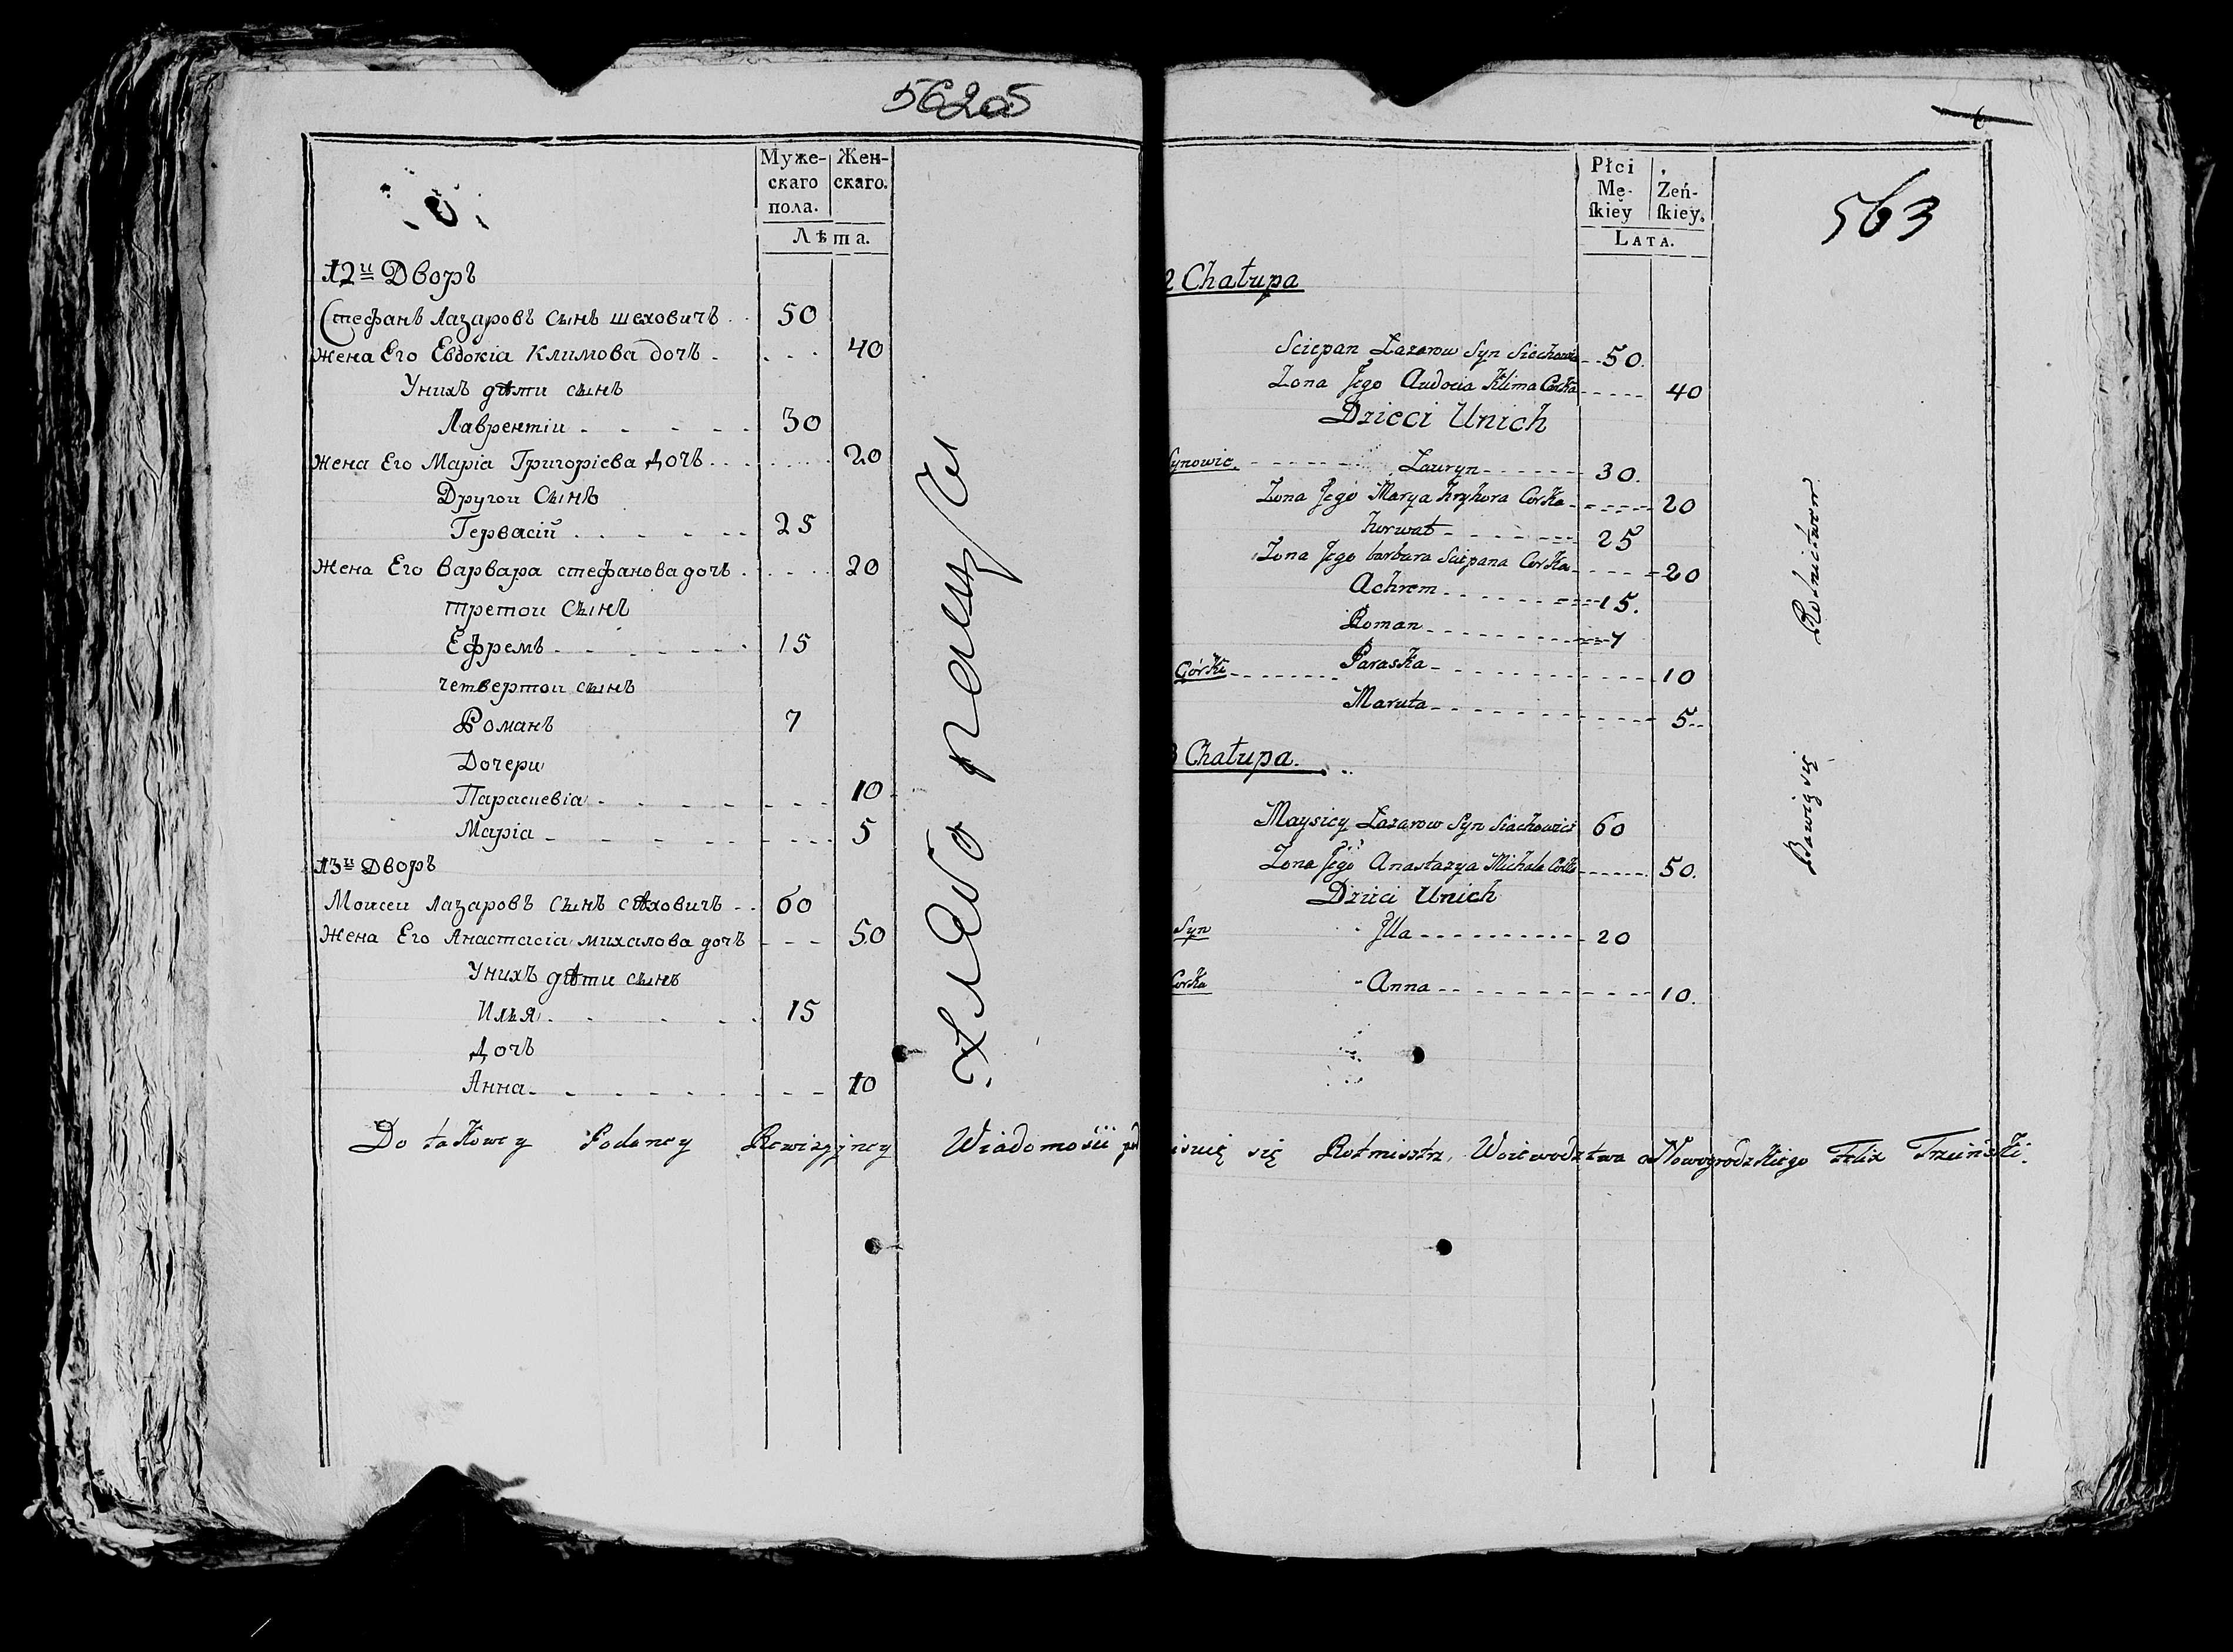 562об
Муже- Жен-
скаго скаго.
пола.
Лѣта.
12й Дворъ
Стефанъ Лазаровъ сынъ шеховичъ 50
Жена Его Евдокіа Климова дочъ 40
Унихъ дѣти сынъ
Лаврентіи 30
Жена Его Маріа Григоріева дочъ 20
Другои Сынъ
Гервасій 25
Жена Его Варвара стефанова дочъ 20
третои Сынъ
Ефремъ 15
четвертои сынъ
Романъ 7
Дочери
Параскевіа 10
Маріа 5
13й Дворъ
Моисеи Лазаровъ сынъ сѣховичъ 60
Жена Его Анастасіа михалова дочъ 50
Унихъ дѣти сынъ
Илья 15
Дочъ
Анна 10
хлѣбо пашцы
6
563
Płci
Mę- Żeń-
skiey skiey.
LATA.
2 Chałupa
Sciepan Łazarow Syn Siechowicz 50.
Zona Jego Audocia Klima Corka 40
Dzieci Unich
Synowie Ławryn 30.
Zona Jego Marya hryhora Corka 20
hurwat 25
Zona Jego barbara Sciepana Corka 20
Achrem 15.
Roman 7
Córki Paraska 10
Maruta 5
3 Chałupa.
Maysiey Łazarow Syn Siachowicz 60
Zona Jego Anastazya Michała Corka 50.
Dzieci Unich
Syn Jlla 20
Corka Anna 10.
Bawią się Rolnictwem
Do takowey Podaney Rewizyiney Wiadomosci podpisuię się Rotmistrz Woiewodztwa Nowogrodzkiego Felix